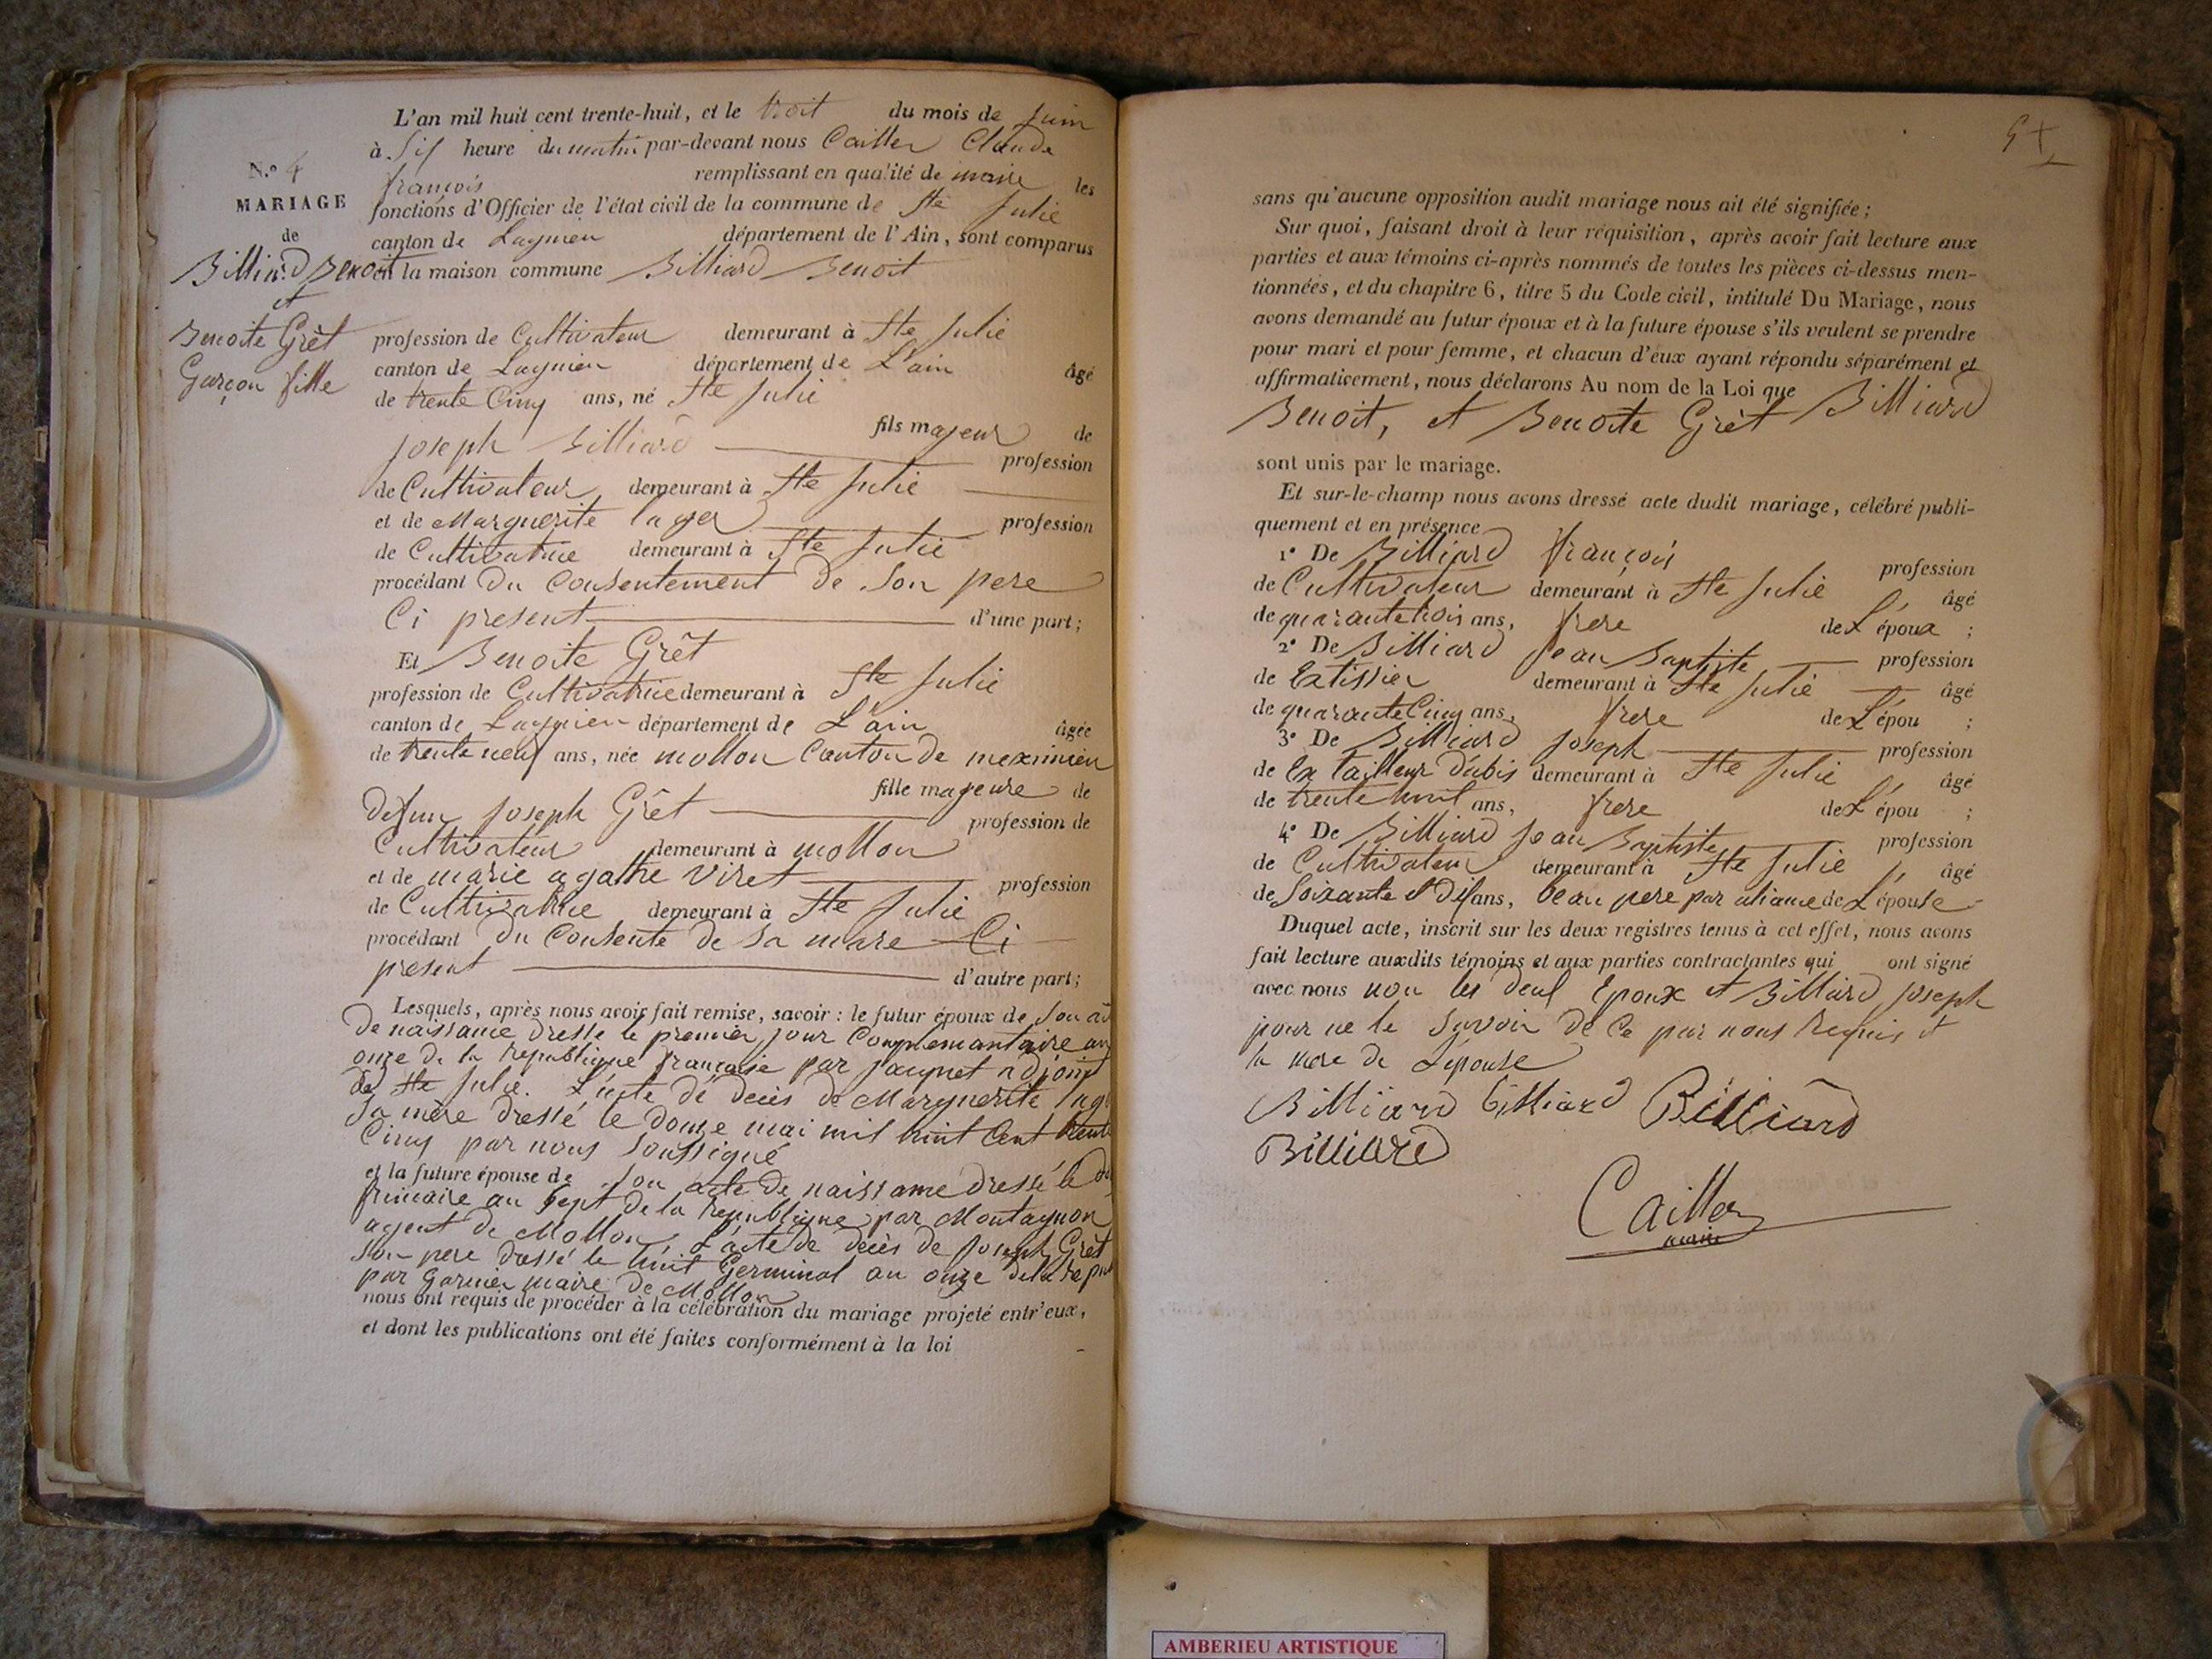 L'an mil huit cent trente-huit, et le troit du mois de Juin
à Six heure du matin par-devant nous Cailler Claude
françois remplissant en qualité de maire les
fonctions d'Officier de l'état civil de la commune de Ste Julie
canton de Lagnieu département de l'Ain, sont comparus
en la maison commune Billiard Benoit
N.º 4
MARIAGE
de
Billiard Benoit
et
Benoite Grèt
Garçon fille
profession de Cultivateur demeurant à Ste Julie
canton de Lagnieu département de L'ain âgé
de trente Cinq ans, né Ste Julie
fils majeur de
Joseph Billiard profession
de Cultivateur demeurant à Ste Julie
et de Marguerite lager profession
de Cultivatrice demeurant à Ste Julie
procédant Du Consentement De Son pere
Ci present d'une part;
Et Benoite Grèt
profession de Cultivatrice demeurant à Ste Julie
canton de Lagnieu département de L'ain âgée
de trente neuf ans, née mollon Canton de meximieu
fille majeure de
Defun Joseph Grèt profession de
Cultivateur demeurant à mollon
et de marie agathe Viret profession
de Cultivatrice demeurant à Ste Julie
procédant Du Consente De Sa mare Ci
present d'autre part;
Lesquels, après nous avoir fait remise, savoir : le futur époux de Son
De naissance Dresse le premier jour Complemantaire an
onze De la republique française par jacquet adjoint
de Ste Julie. L'acte de décès de Marguerite
Sa mère dressé le Douze mai mil huit Cent trente
Cinq par nous Soussigné
et la future épouse de Son acte De naissance Dressé le
frimaire an Sept de la republique par Montagnon
agent de Mollon, L'acte de décès de Joseph Grèt
Son pere dressé le huit Germinal an onze dela
par Garnier maire de Mollon
nous ont requis de procéder à la célébration du mariage projeté entr'eux,
et dont les publications ont été faites conformément à la loi
sans qu'aucune opposition audit mariage nous ait été signifiée;
Sur quoi, faisant droit à leur réquisition, après avoir fait lecture aux
parties et aux témoins ci-après nommés de toutes les pièces ci-dessus men-
tionnées, et du chapitre 6, titre 5 du Code civil, intitulé Du Mariage, nous
avons demandé au futur époux et à la future épouse s'ils veulent se prendre
pour mari et pour femme, et chacun d'eux ayant répondu séparément et
affirmativement, nous déclarons Au nom de la Loi que Billiard
Benoit, et Benoite Grèt
sont unis par le mariage.
Et sur-le-champ nous avons dressé acte dudit mariage, célébré publi-
quement et en présence
1º De Billiard françois profession
de Cultivateur demeurant à Ste Julie âgé
de quarante trois ans, frere de L'époux ;
2º De Billiard Jean Baptiste profession
de Ex tissier demeurant à Ste Julie âgé
de quarante Cinq ans, frere de L'épou ;
3º De Billiard Joseph profession
de Ex tailleur D'abis demeurant à Ste Julie âgé
de trente huit ans, frere de L'épou ;
4º De Billiard Jean Baptiste profession
de Cultivateur demeurant à Ste Julie âgé
de Soixante et Dix ans, beau pere par aliance de L'épouse
Duquel acte, inscrit sur les deux registres tenus à cet effet, nous avons
fait lecture auxdits témoins et aux parties contractantes qui ont signé
avec nous non les Deux Epoux et Billiard Joseph
pour ne le Savoir De Ce par nous requis et
la mere de Lépouse
Billiard billiard Billiard
Billiard
Cailler
maire
AMBERIEU ARTISTIQUE